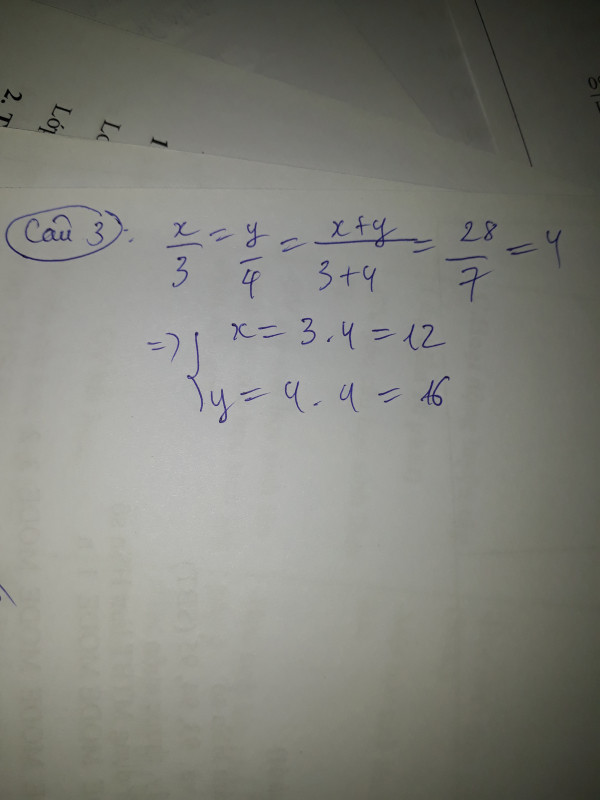 2. T
Lớp
1
Câu 3: x/3 = y/4 = x+y/3+4 = 28/7 = 4
=> { x = 3 . 4 = 12
y = 4 . 4 = 16